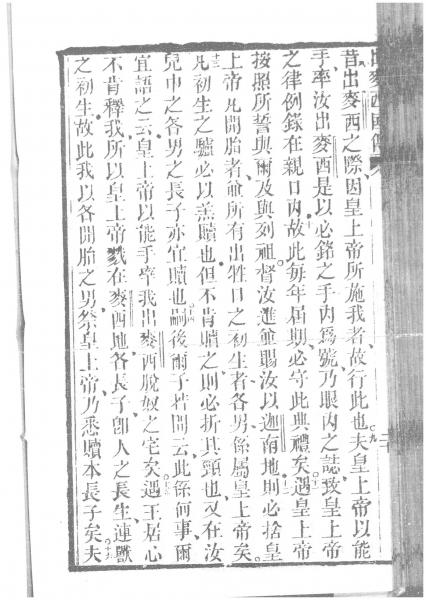 昔出麥西之際因皇上帝所施我者故行此也九夫皇上帝以能
手率汝出麥西是以必銘之手內爲號乃眼內之誌致皇上帝
之律例錄在親口內故此每年屆期必守此典禮矣遇皇上帝
按照所誓與爾及與列祖督汝進並賜汝以迦南地則必捨皇
上帝凡開胎者並所有出牲口之初生者各男係屬皇上帝矣
凡初生之驢必以羔贖也但不肯贖之則必折其頸也又在汝
兒中之各男之長子亦宜贖也嗣後爾子若問云此係何事爾
宜語之云皇上帝以能手率我出麥西脫奴之宅矣遇王居心
不肯釋我所以皇上帝戮在麥西地各長子卽人之長生連獸
之初生故此我以各開胎之男祭皇上帝乃悉贖本長子矣夫